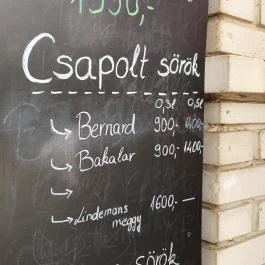 1990,-
Csapolt sörök
0,3l 0,5l
↳ Bernard 900,- 1400,-
↳ Bakalar 900,- 1400,-
↳
↳ Lindemans meggy 1600,- —
sörök